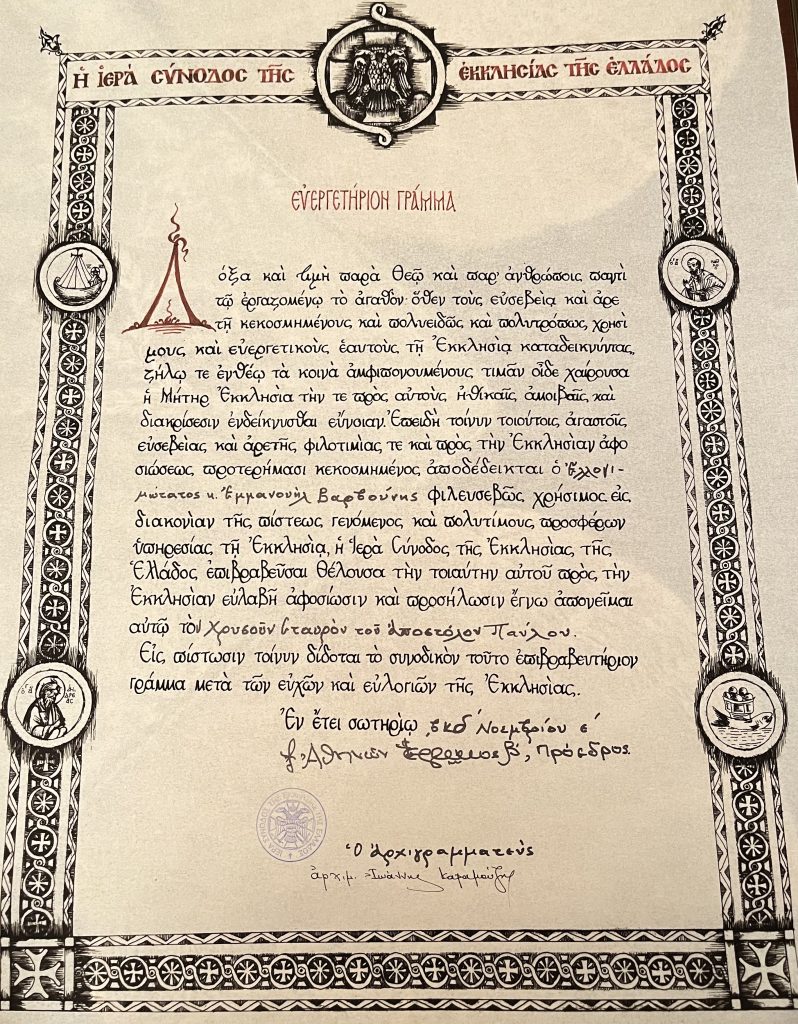 Ἡ ἹΕΡᾺ ΣΎΝΟΔΟΣ ΤΗ͂Σ ἘΚΚΛΗΣΊΑΣ ΤΗ͂Σ ἙΛΛΆΔΟΣ
ΕὐΕΡΓΕΤΉΡΙΟΝ ΓΡΆΜΜΑ
Δόξα καὶ τιμὴ παρὰ Θεῷ καὶ παρ' ἀνθρώποις παντὶ
τῷ ἐργαζομένῳ τὸ ἀγαθόν· ὅθεν τοὺς εὐσεβείᾳ καὶ ἀρε
τῇ κεκοσμημένους καὶ πολυειδῶς καὶ πολυτρόπως χρησί
μους καὶ εὐεργετικοὺς ἑαυτοὺς τῇ Ἐκκλησίᾳ καταδεικνύντας,
ζήλῳ τε ἐνθέῳ τὰ κοινὰ ἀμφιπονουμένους τιμᾶν οἶδε χαίρουσα
ἡ Μήτηρ Ἐκκλησία τήν τε πρὸς αὐτοὺς ἠθικαῖς ἀμοιβαῖς καὶ
διακρίσεσιν ἐνδείκνυσθαι εὔνοιαν. Ἐπειδὴ τοίνυν τοιούτοις ἀγαστοῖς
εὐσεβείας καὶ ἀρετῆς φιλοτιμίας τε καὶ πρὸς τὴν Ἐκκλησίαν ἀφο
σιώσεως προτερήμασι κεκοσμημένος ἀποδέδεικται ὁ Ἐλλογι-
μώτατος κ. Ἐμμανουὴλ Βαρβούνης φιλευσεβῶς χρήσιμος εἰς
διακονίαν τῆς πίστεως γενόμενος καὶ πολυτίμους προσφέρων
ὑπηρεσίας τῇ Ἐκκλησίᾳ, ἡ Ἱερὰ Σύνοδος τῆς Ἐκκλησίας τῆς
Ἑλλάδος ἐπιβραβεῦσαι θέλουσα τὴν τοιαύτην αὐτοῦ πρὸς τὴν
Ἐκκλησίαν εὐλαβῆ ἀφοσίωσιν καὶ προσήλωσιν ἔγνω ἀπονεῖμαι
αὐτῷ τὸν Χρυσοῦν Σταυρὸν τοῦ Ἀποστόλου Παύλου.
Εἰς πίστωσιν τοίνυν δίδοται τὸ συνοδικὸν τοῦτο ἐπιβραβευτήριον
γράμμα μετὰ τῶν εὐχῶν καὶ εὐλογιῶν τῆς Ἐκκλησίας.
Ἐν ἔτει σωτηρίῳ ͵βκδ' Νοεμβρίου ε'
Ἀθηνῶν Β', Πρόεδρος
Ὁ Ἀρχιγραμματεὺς
ἀρχιμ. Ἰωάννης Καραμούζης